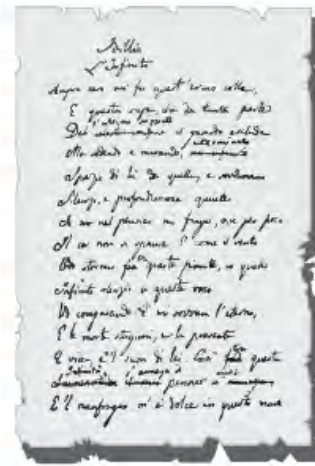 Idillio
L'Infinito
Sempre caro mi fu quest'ermo colle,
E questa siepe, che da tanta parte
l'ultimo
De il guardo esclude
Ma sedendo e mirando, interminato
Spazio di là da quella, e sovrumani
Silenzi, e profondissima quiete
Io nel pensier mi fingo, ove per poco
Il cor non si spaura. E come il vento
Odo stormir fra queste piante, io quello
Infinito silenzio a questa voce
Vo comparando: E mi sovvien l'eterno,
E le morte stagioni, e la presente
E viva, e 'l suon di lei. Così questa
pensier
E 'l naufragar m'è dolce in questo mare